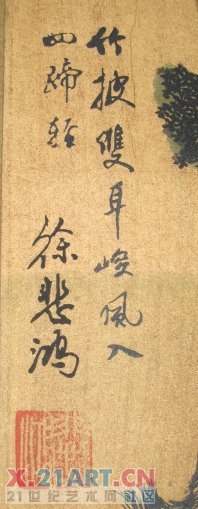 竹披雙耳峻風入
四蹄輕
徐悲鴻
X.21ART.CN
21世纪艺术网社区